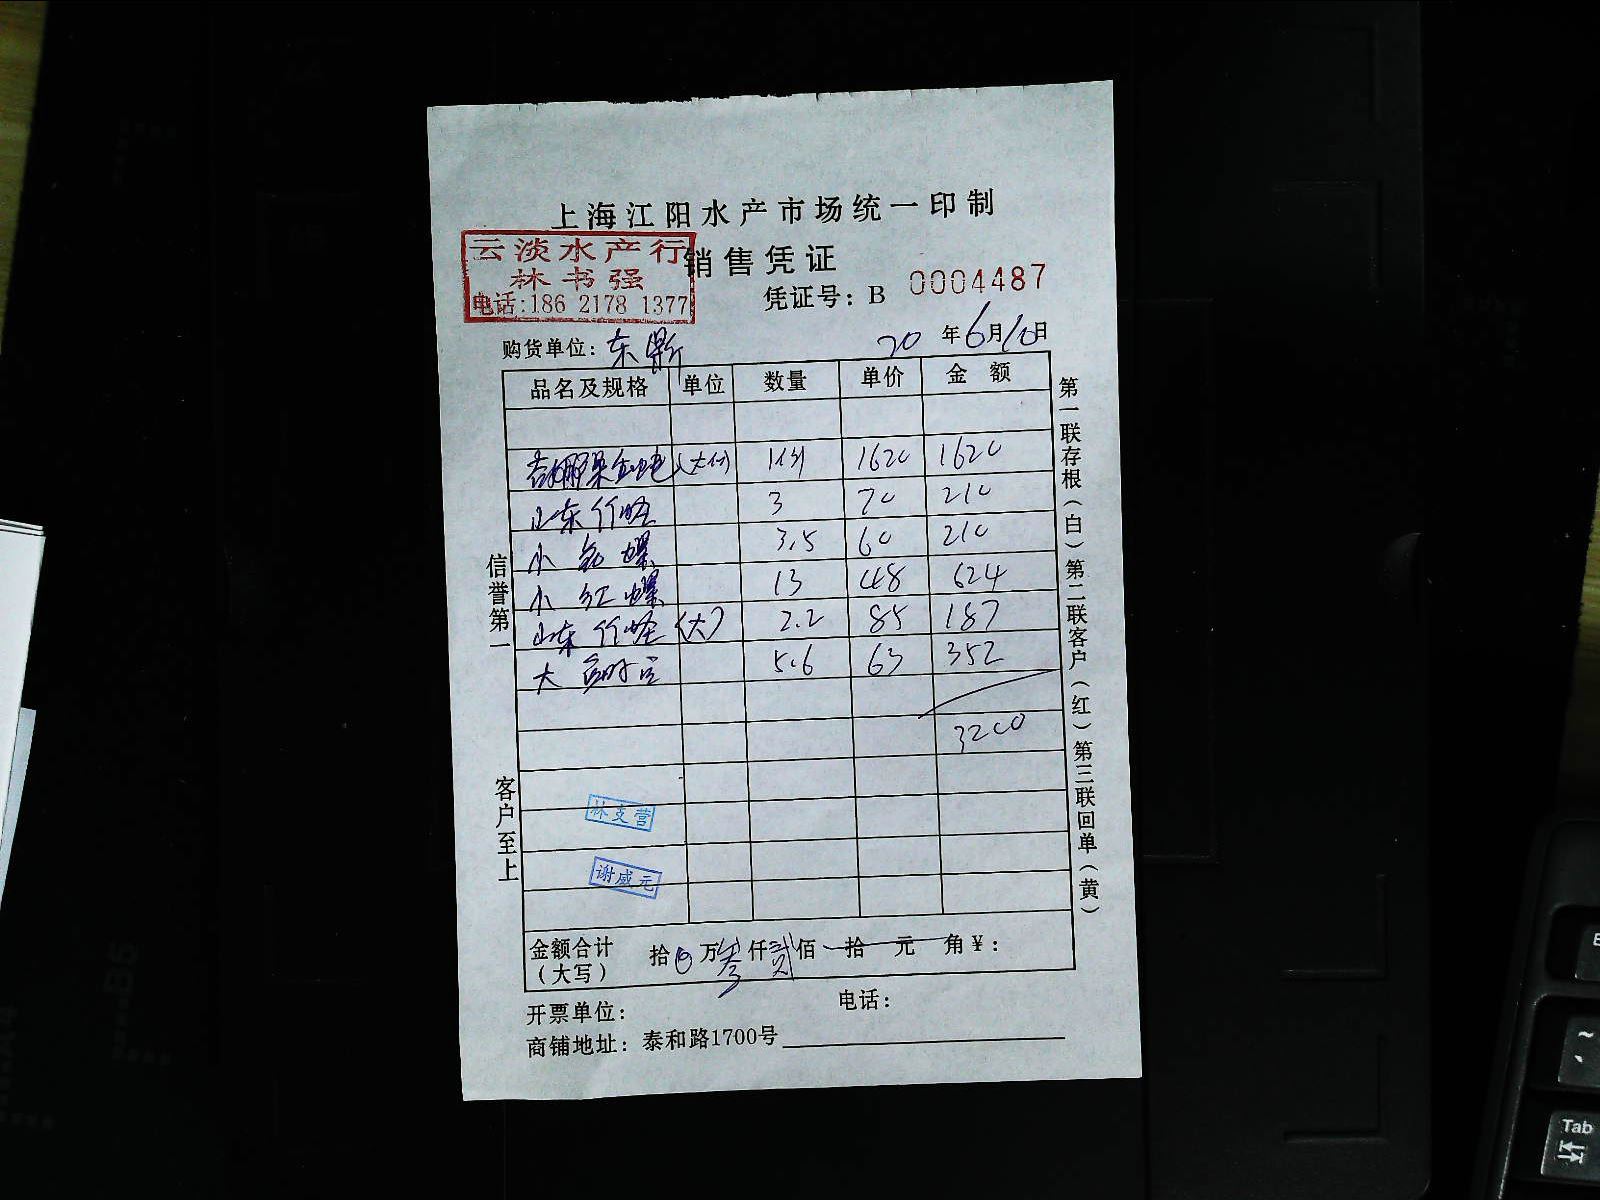 上海江阳水产市场统一印制
云淡水产行
林书强
电话:186 2178 1377
销售凭证
凭证号：B 0004487
购货单位：东
20年6月10日
品名及规格 单位 数量 单价 金额
1620 1620
山东竹蛏 3 70 210
小 螺 3.5 60 210
小红螺 13 48 624
山东竹蛏(大) 2.2 85 187
大 5.6 63 352
3200
林支营
谢威元
金额合计（大写） 拾0万叁仟贰佰拾元角¥：
开票单位：
电话：
商铺地址：泰和路1700号
信誉第一
客户至上
第一联存根（白）第二联客户（红）第三联回单（黄）
Tab